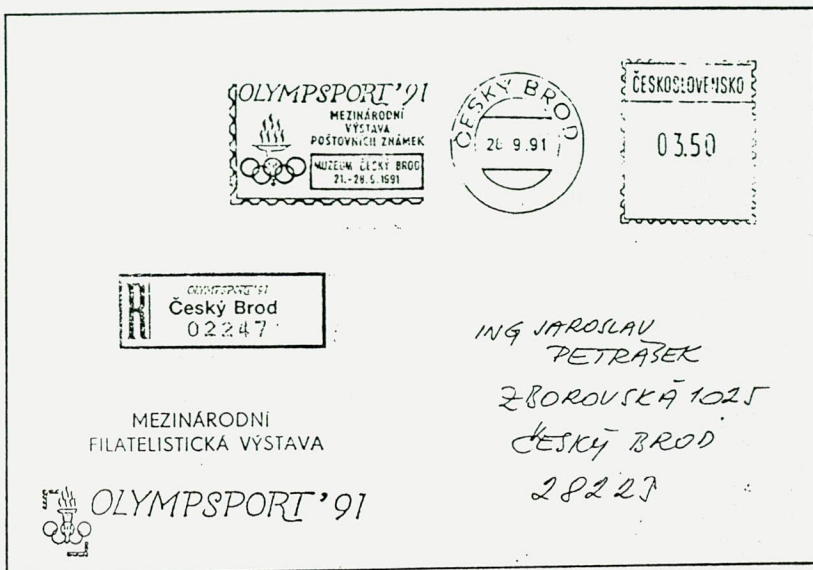 OLYMPSPORT '91
MEZINÁRODNÍ
VÝSTAVA
POŠTOVNÍCH ZNÁMEK
MUZEUM ČESKÝ BROD
21.-28.9.1991
ČESKÝ BROD
20 9.91
ČESKOSLOVENSKO
03.50
R
OLYMPSPORT '91
Český Brod
02247
ING JAROSLAV
PETRÁSEK
ZBOROVSKÁ 1025
ČESKÝ BROD
28223
MEZINÁRODNÍ
FILATELISTICKÁ VÝSTAVA
OLYMPSPORT '91